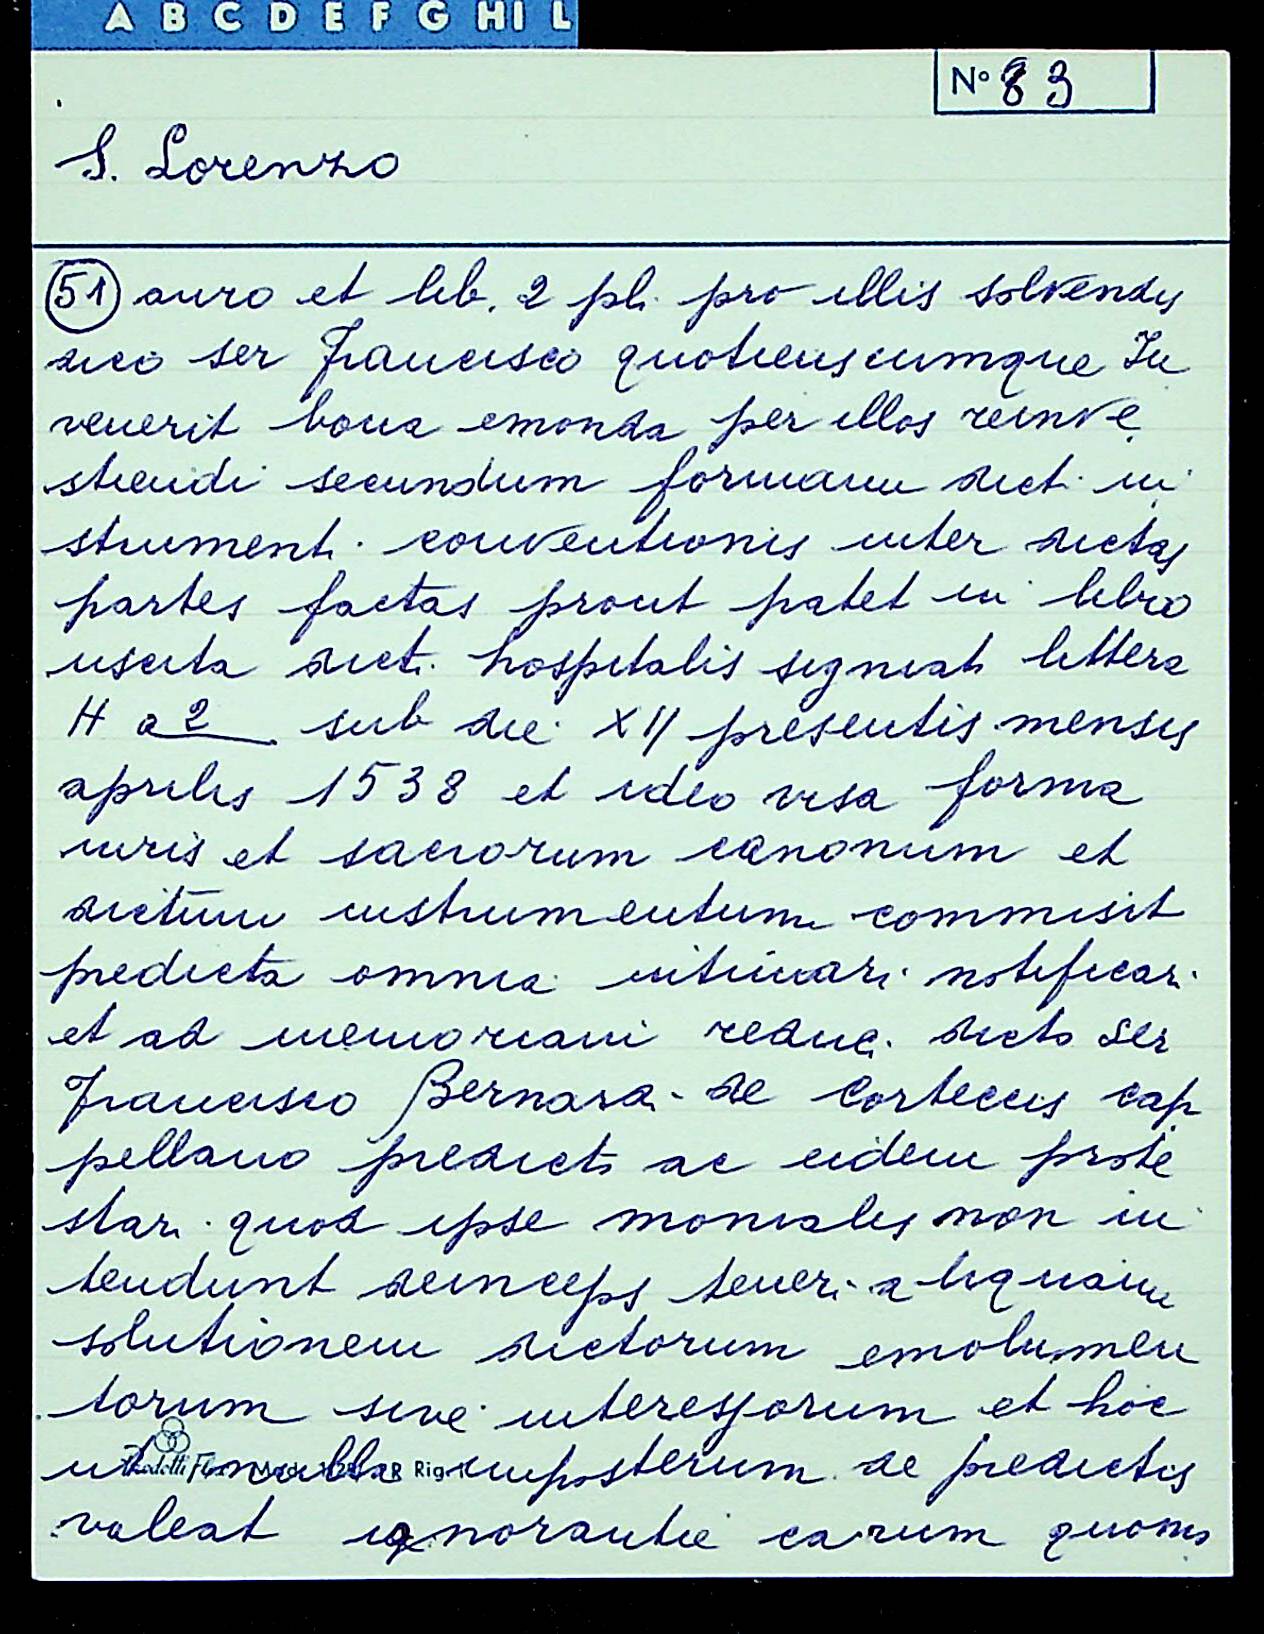 A B C D E F G H I L
Nº 83
S. Lorenzo
51 auro et lib. 2 pl. pro illis solvendis
dico ser Francisco quotiens cumque In
venerit bona emonda per illos reinve
stiendi secundum formam dict. in
strument. conventionis inter dictas
partes factas prout patet in libro
uscita dict. hospitalis signat. littera
H a 2 sub die XII presentis mensis
aprilis 1538 et ideo visa forma
iuris et sacrorum canonum et
dictum instrumentum commisit
predicta omnia intimari notificari
et ad memoriam reduc. dicto ser
Francisco Bernard. de Corteccis cap
pellano predicto ac eidem prote
stari quod ipse moniales non in
tendunt deinceps teneri aliquam
solutionem dictorum emolumen
torum sive interessorum et hoc
ut nulla imposterum de predictis
valeat ignorantie earum quomo